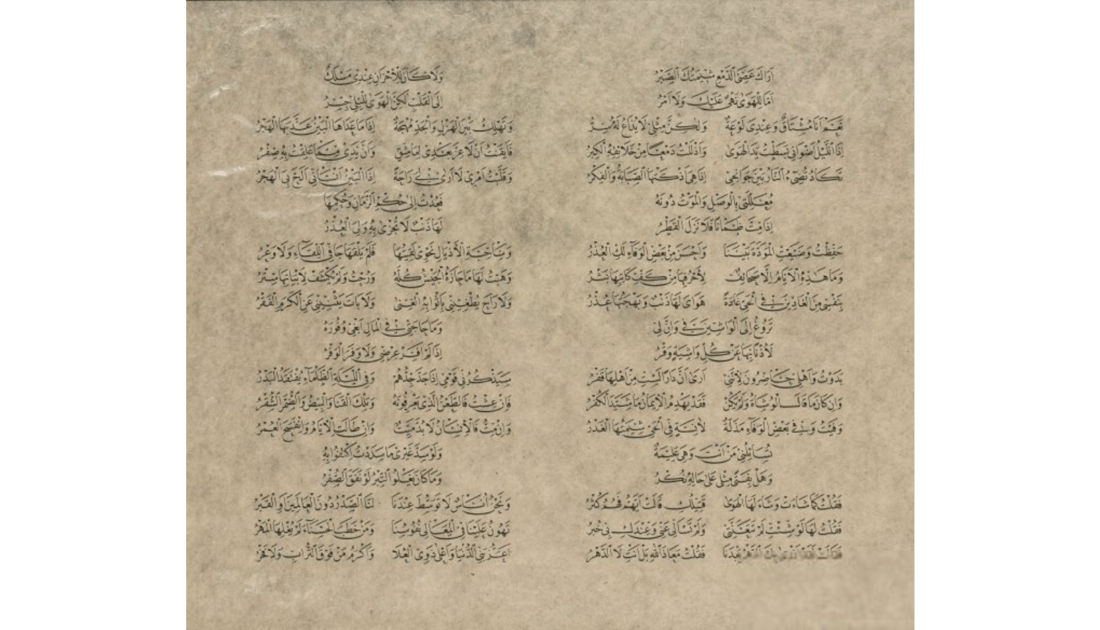 أَرَاكَ عَصِيَّ الدَّمْعِ شِيمَتُكَ الصَّبْرُ
أَمَا لِلْهَوَى نَهْيٌ عَلَيْكَ وَلَا أَمْرُ
نَعَمْ أَنَا مُشْتَاقٌ وَعِنْدِيَ لَوْعَةٌ وَلَكِنَّ مِثْلِي لَا يُذَاعُ لَهُ سِرُّ
إِذَا اللَّيْلُ أَضْوَانِي بَسَطْتُ يَدَ الْهَوَى وَأَذْلَلْتُ دَمْعًا مِنْ خَلَائِقِهِ الْكِبْرُ
تَكَادُ تُضِيءُ النَّارُ بَيْنَ جَوَانِحِي إِذَا هِيَ أَذْكَتْهَا الصَّبَابَةُ وَالْفِكْرُ
مُعَلِّلَتِي بِالْوَصْلِ وَالْمَوْتُ دُونَهُ
إِذَا مِتُّ ظَمْآنًا فَلَا نَزَلَ الْقَطْرُ
حَفِظْتُ وَضَيَّعْتِ الْمَوَدَّةَ بَيْنَنَا وَأَحْسَنُ مِنْ بَعْضِ الْوَفَاءِ لَكِ الْعُذْرُ
وَمَا هَذِهِ الْأَيَّامُ إِلَّا صَحَائِفٌ لِأَحْرُفِهَا مِنْ كَفِّ كَاتِبِهَا بَشْرُ
بِنَفْسِي مِنَ الْغَادِينَ فِي الْحَيِّ غَادَةً هَوَايَ لَهَا ذَنْبٌ وَبَهْجَتُهَا عُذْرُ
تَرُوغُ إِلَى الْوَاشِينَ فِيَّ وَإِنَّ لِي
لَأُذْنًا بِهَا عَنْ كُلِّ وَاشِيَةٍ وَقْرُ
بَدَوْتُ وَأَهْلِي حَاضِرُونَ لِأَنَّنِي أَرَى أَنَّ دَارًا لَسْتِ مِنْ أَهْلِهَا قَفْرُ
وَإِنْ كَانَ مَا قَالَ الْوُشَاةُ وَلَمْ يَكُنْ فَقَدْ يَهْدِمُ الْإِيمَانُ مَا شَيَّدَ الْكُفْرُ
وَفَيْتُ وَفِي بَعْضِ الْوَفَاءِ مَذَلَّةٌ لِآنِسَةٍ فِي الْحَيِّ شِيمَتُهَا الْغَدْرُ
تُسَائِلُنِي مَنْ أَنْتَ وَهِيَ عَلِيمَةٌ
وَهَلْ بِفَتًى مِثْلِي عَلَى حَالِهِ نُكْرُ
فَقُلْتُ كَمَا شَاءَتْ وَشَاءَ لَهَا الْهَوَى قَتِيلُكِ قَالَتْ أَيُّهُمْ فَهُمُ كُثْرُ
فَقُلْتُ لَهَا لَوْ شِئْتِ لَمْ تَتَعَنَّتِي وَلَمْ تَسْأَلِي عَنِّي وَعِنْدَكِ بِي خُبْرُ
فَقَالَتْ لَقَدْ أَزْرَى بِكَ الدَّهْرُ بَعْدَنَا فَقُلْتُ مَعَاذَ اللهِ بَلْ أَنْتِ لَا الدَّهْرُ
وَلَا كَانَ لِلْأَحْزَانِ عِنْدِي مَسْلَكٌ
إِلَى الْقَلْبِ لَكِنَّ الْهَوَى لِلْبِلَى جِسْرُ
وَتَهْلِكُ بَيْنَ الْهَزْلِ وَالْجِدِّ مُهْجَةٌ إِذَا مَا عَدَاهَا الْبَيْنُ عَذَّبَهَا الْهَجْرُ
فَأَيْقَنْتُ أَنْ لَا عِزَّ بَعْدِي لِعَاشِقٍ وَأَنَّ يَدِي مِمَّا عَلِقْتُ بِهِ صِفْرُ
وَقَلَّبْتُ أَمْرِي لَا أَرَى لِي رَاحَةً إِذَا الْبَيْنُ أَنْسَانِي أَلَحَّ بِيَ الْهَجْرُ
فَعُدْتُ إِلَى حُكْمِ الزَّمَانِ وَحُكْمِهَا
لَهَا ذَنْبٌ لَا تُجْزَى بِهِ وَلِيَ الْعُذْرُ
وَسَاحِبَةِ الْأَذْيَالِ نَحْوِي لَقِيتُهَا فَلَمْ يَلْقَهَا جَافِي اللِّقَاءِ وَلَا وَعْرُ
وَهَبْتُ لَهَا مَا حَازَهُ الْجَيْشُ كُلَّهُ وَرُحْتُ وَلَمْ يُكْشَفْ لِأَبْيَاتِهَا سِتْرُ
وَلَا رَاحَ يُطْغِينِي بِأَثْوَابِهِ الْغِنَى وَلَا بَاتَ يَثْنِينِي عَنِ الْكَرَمِ الْفَقْرُ
وَمَا حَاجَتِي فِي الْمَالِ أَبْغِي وُفُورَهُ
إِذَا لَمْ أَفِرْ عِرْضِي وَلَا وَفَرَ الْوَفْرُ
سَيَذْكُرُنِي قَوْمِي إِذَا جَدَّ جِدُّهُمْ وَفِي اللَّيْلَةِ الظَّلْمَاءِ يُفْتَقَدُ الْبَدْرُ
فَإِنْ عِشْتُ فَالطَّعْنُ الَّذِي يَعْرِفُونَهُ وَتِلْكَ الْقَنَا وَالْبِيضُ وَالضُّمَّرُ الشُّقْرُ
وَإِنْ مِتُّ فَالْإِنْسَانُ لَا بُدَّ مَيِّتٌ وَإِنْ طَالَتِ الْأَيَّامُ وَانْفَسَحَ الْعُمْرُ
وَلَوْ سَدَّ غَيْرِي مَا سَدَدْتُ اكْتَفَوْا بِهِ
وَمَا كَانَ يَغْلُو التِّبْرُ لَوْ نَفَقَ الصُّفْرُ
وَنَحْنُ أُنَاسٌ لَا تَوَسُّطَ عِنْدَنَا لَنَا الصَّدْرُ دُونَ الْعَالَمِينَ أَوِ الْقَبْرُ
تَهُونُ عَلَيْنَا فِي الْمَعَالِي نُفُوسُنَا وَمَنْ خَطَبَ الْحَسْنَاءَ لَمْ يُغْلِهَا الْمَهْرُ
أَعَزُّ بَنِي الدُّنْيَا وَأَعْلَى ذَوِي الْعُلَا وَأَكْرَمُ مَنْ فَوْقَ التُّرَابِ وَلَا فَخْرُ